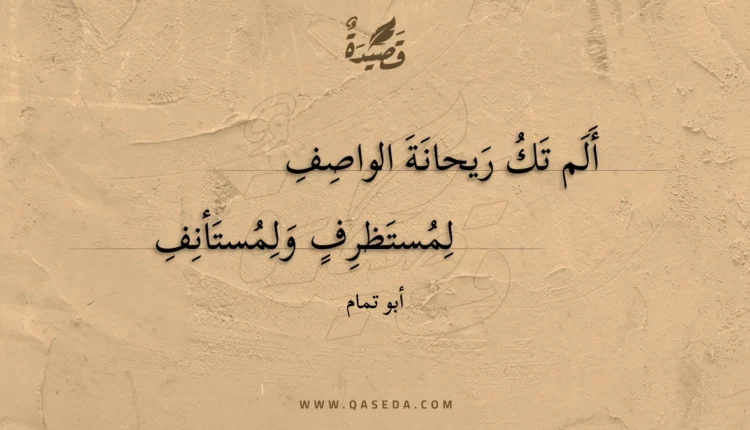 قَصِيْدَةٌ
أَلَم تَكُ رَيحانَةَ الواصِفِ
لِمُستَظرِفٍ وَلِمُستَأنِفِ
أبو تمام
WWW.QASEDA.COM